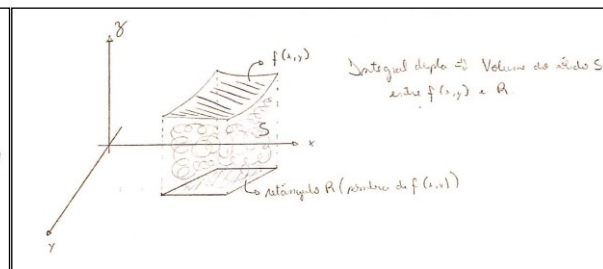 z
f(x,y)
Integral dupla => Volume do sólido S
entre f(x,y) e R.
S
x
retângulo R (sombra de f(x,y))
y